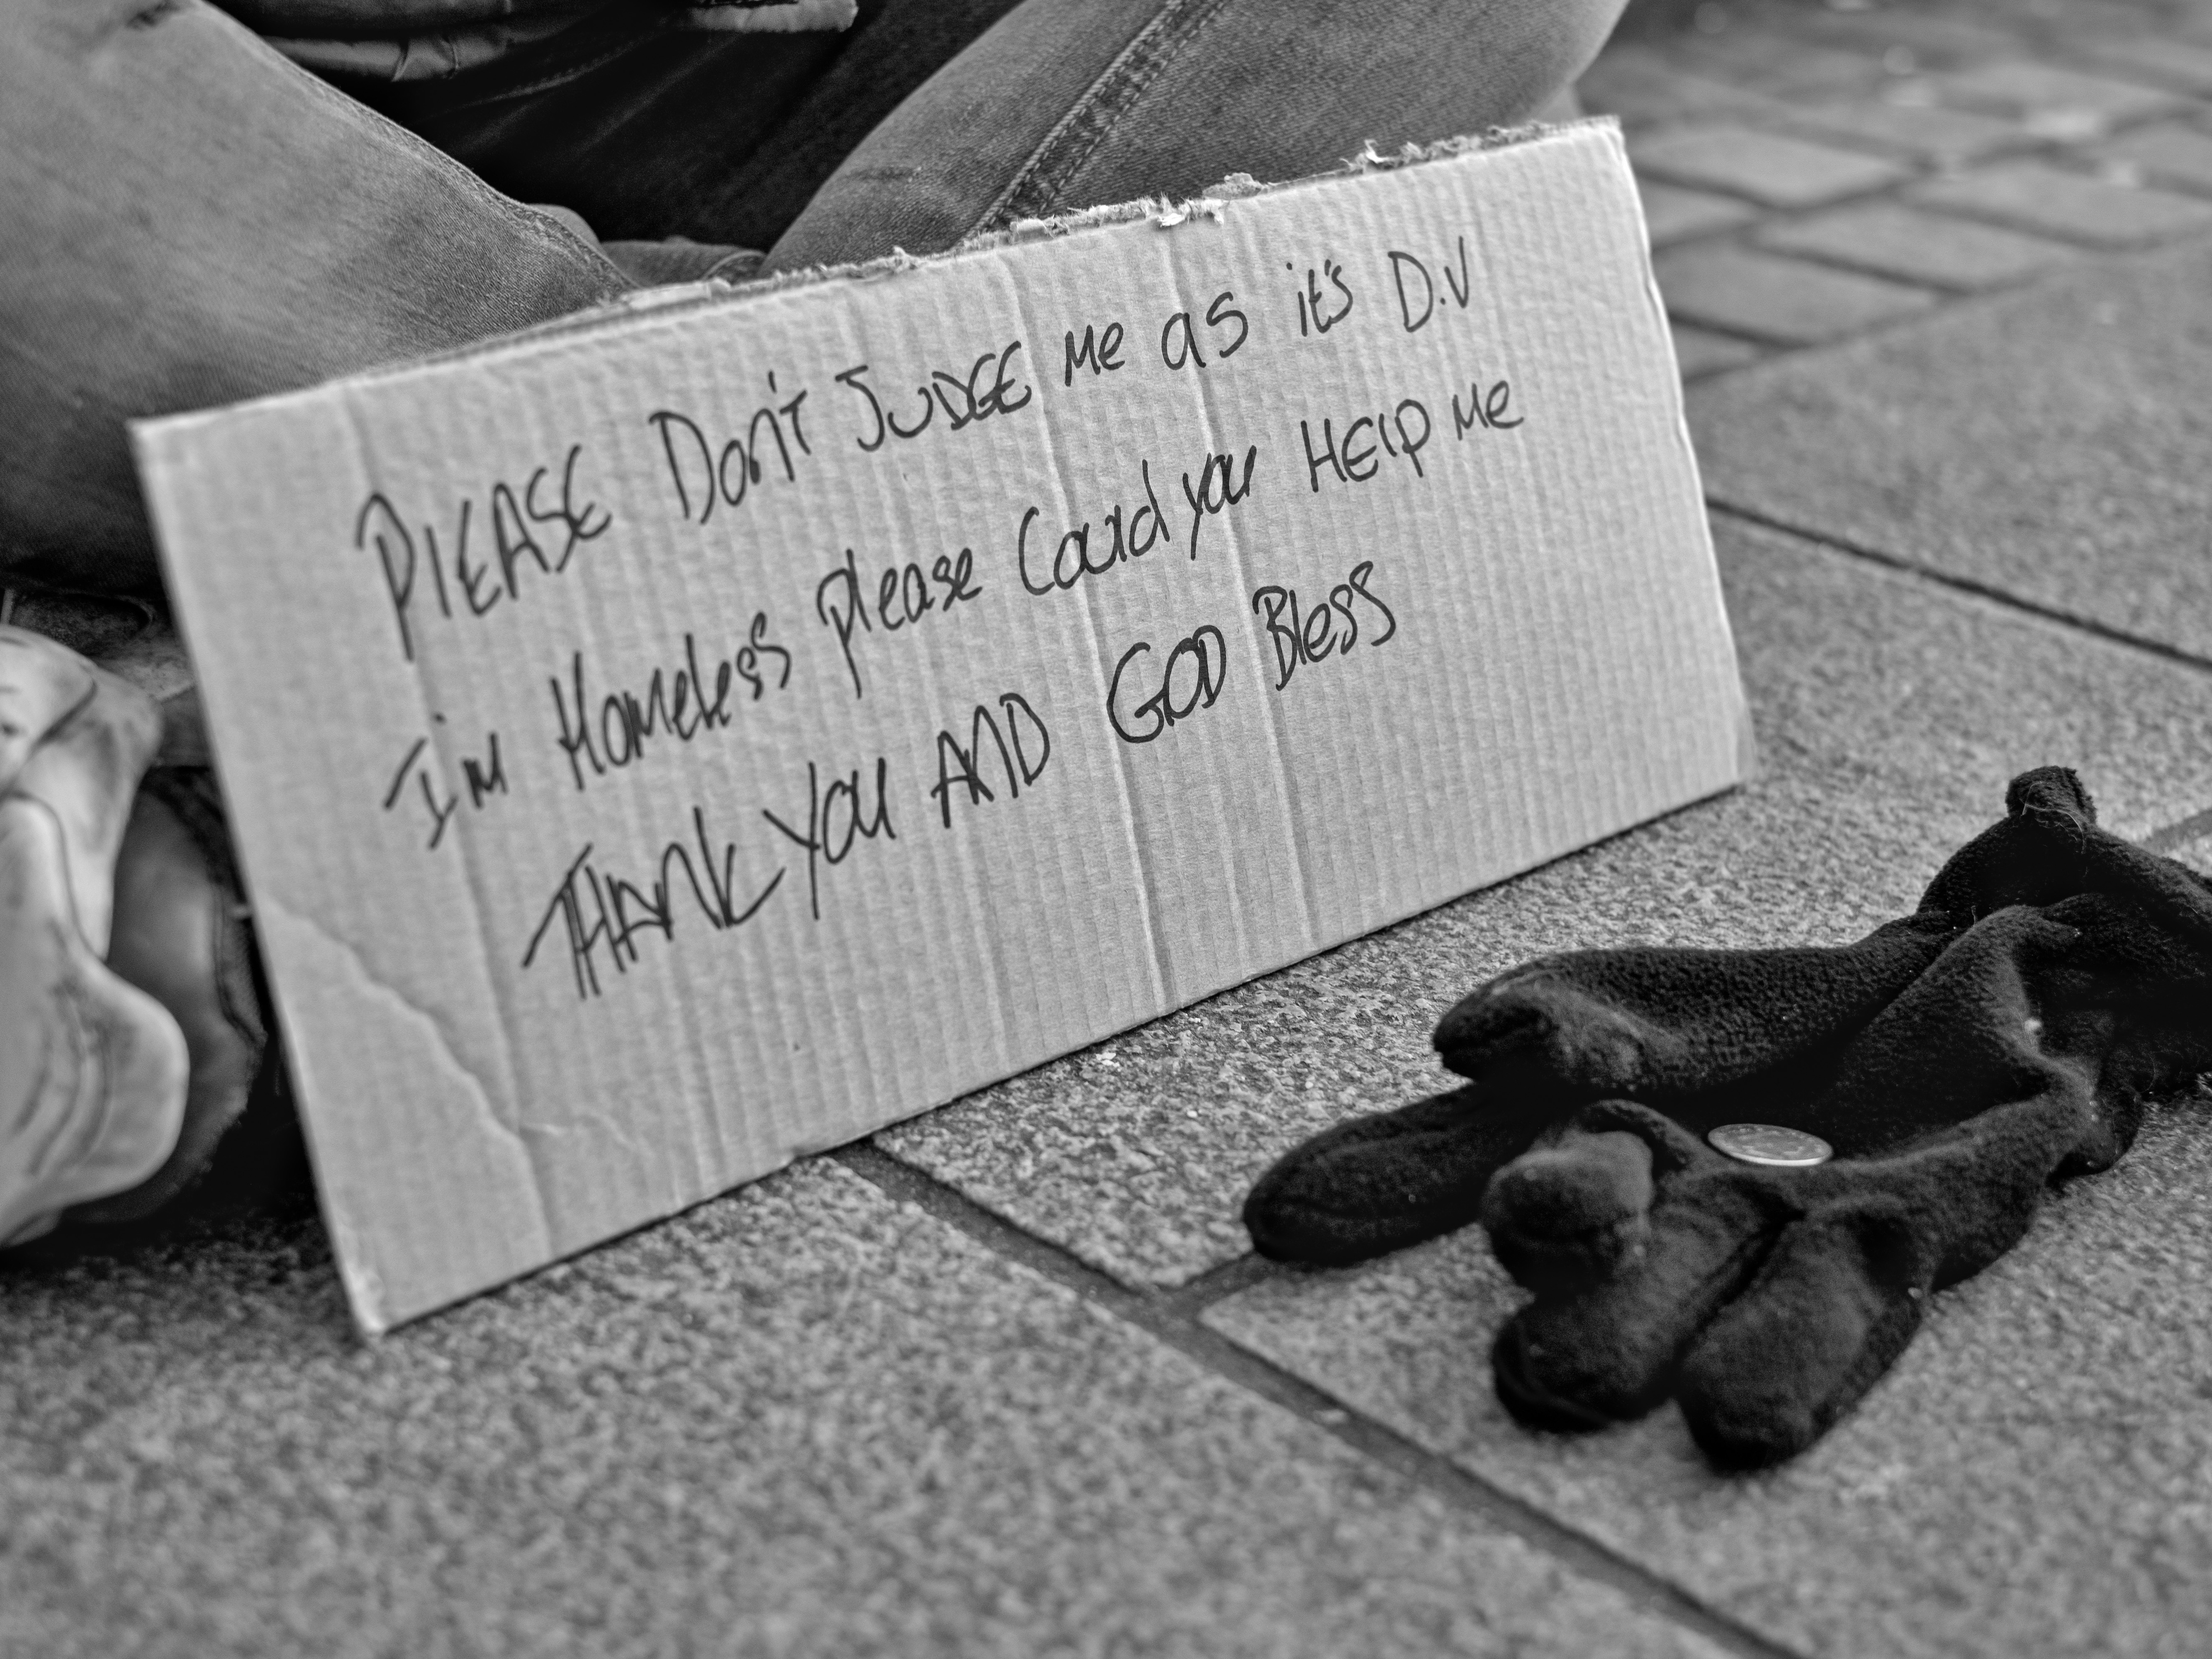 PlEASE Don't JUDGE Me as it's D.V
I'm Homeless please Could you HElp Me
THANK YOU AND GOD Bless